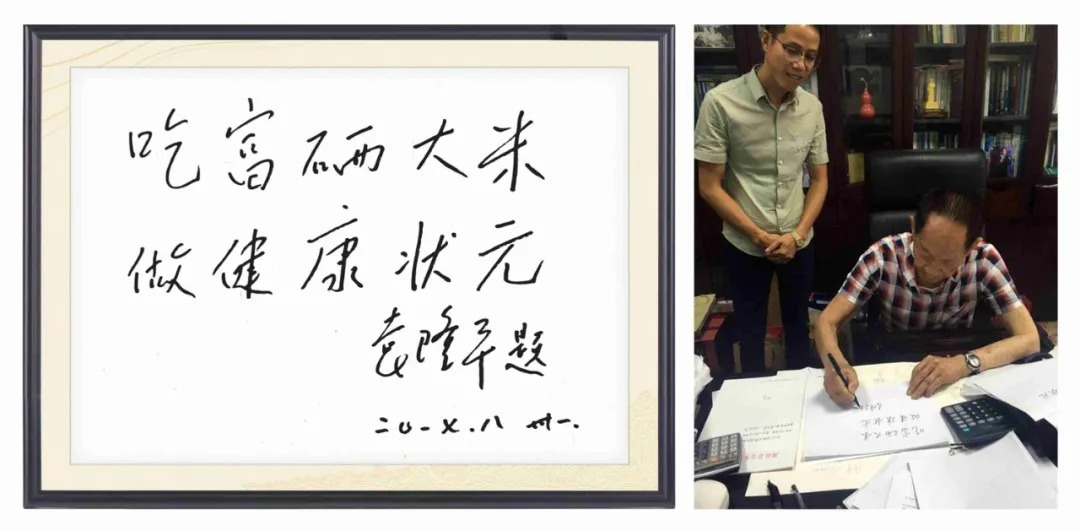 吃富硒大米
做健康状元
袁隆平题
二〇一七.八 卅一.